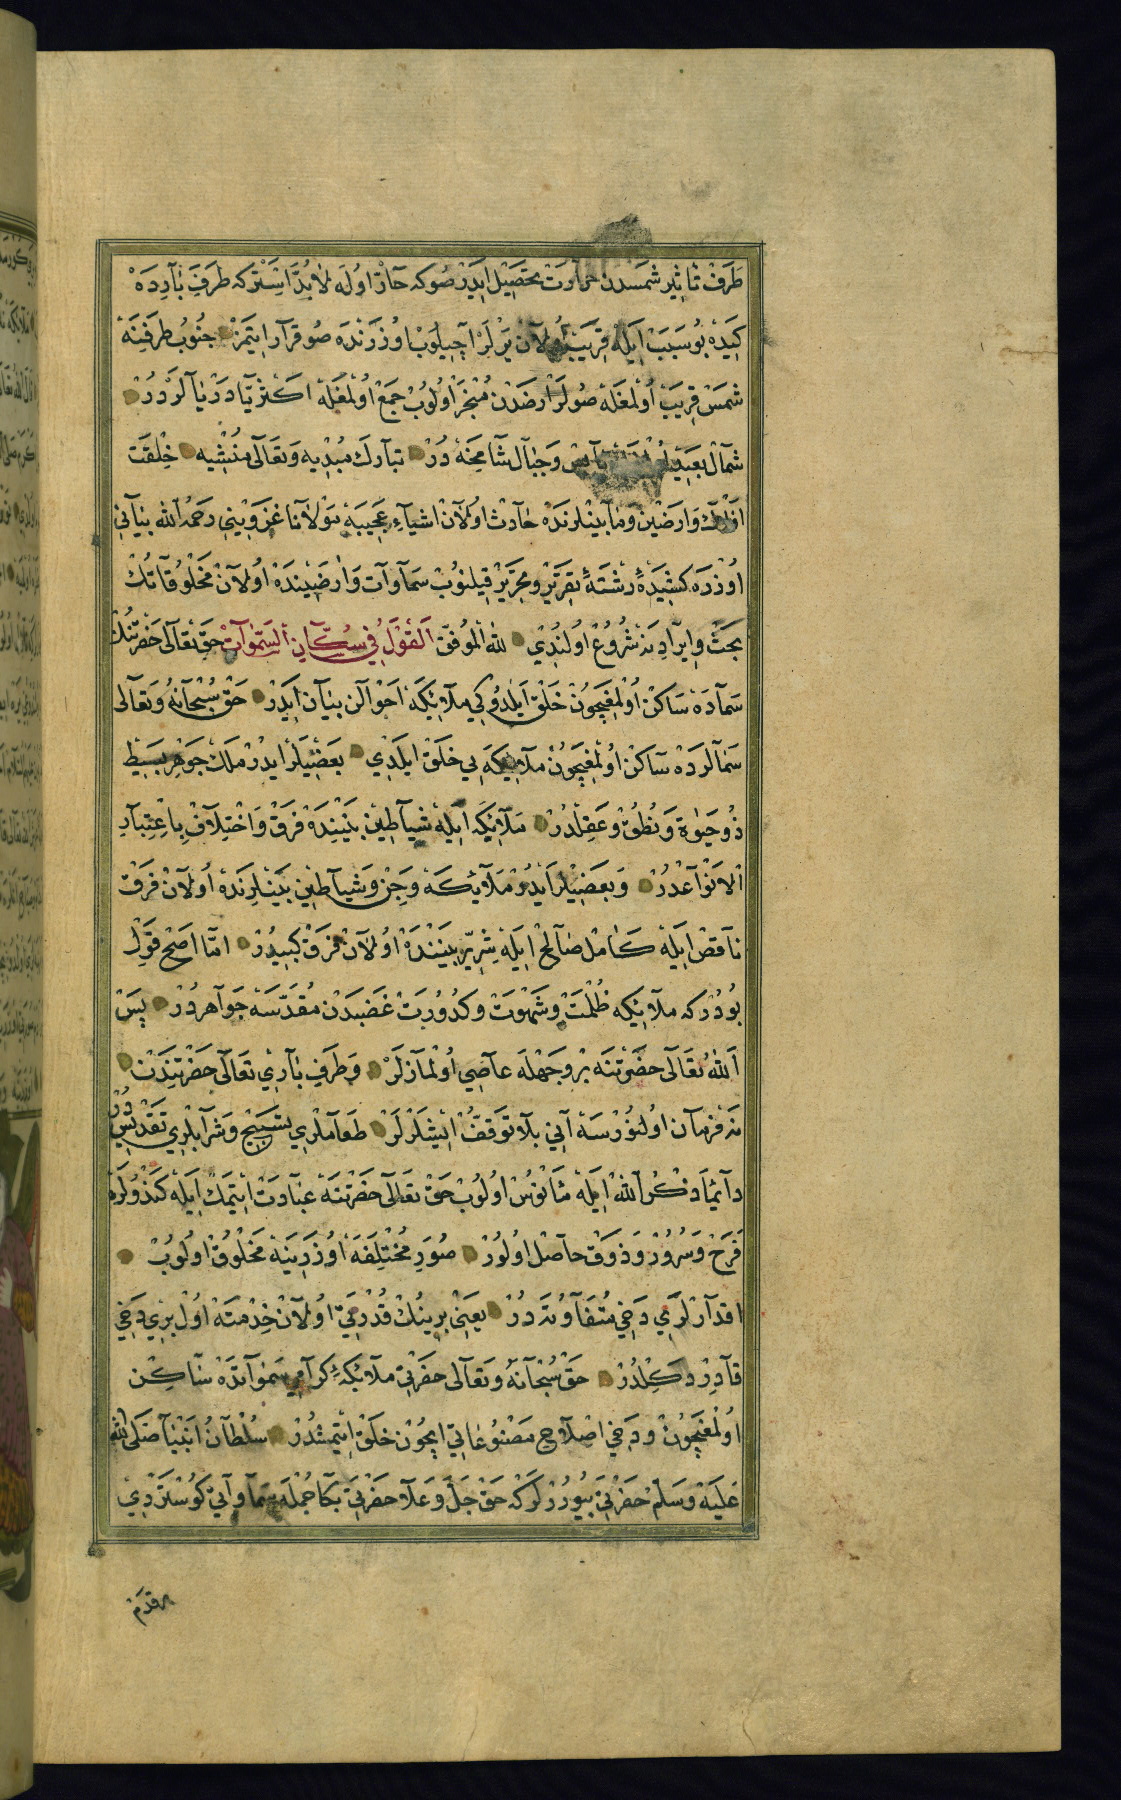 طَرَفْ تٰاثِيرِ شَمْسدن حرارت تحصِيل اِيَدر صُوكه حآرّ اوُلَه لابُدَّ اِسْتَركه طَرَفِ بٰارِدَه
كِيَدَه بُوسَبَبْ اِيلَه قِرِيَبْ اُولآنْ يَرْلَرْ آچِيلُوبْ اوُزَرنْدَه صُو قَرآر اِيتَمَزْ جنُوبْ طَرفِنَه
شَمسْ قِرِيبْ اُولْمغَلَه صُولَرْ اَرضَدَنْ مُنْجَرْ اُولُوبْ جَمْع اُولْمغَلَه اكَثْرِيّا دَرْيٰالَرْدُرْ
شمآل بعَيد وَجبٰآل شٰامِخَه دُرْ تبآرك مُبْدِيه وَتَعَالٰى مُنْشِيه خِلْقَت
وَارَضينْ وَمٰابَينْلرنَده حٰادث اُولآن اشيآءِ عَجيبَه مَولآنا غزوِينِي رحمهُ الله بيٰآنِي
اوُزرَه كشِيدَهٔ رِشْتَهٔ تقرِير وَتحرِير قِيلنوُبْ سَمٰاوٰات وَارضينْدَه اُولآنْ مَخلوُقاتُكْ
بَحثْ وَايرادِينَه شُروُع اوُلنْدِي لله الموفّق اَلقَوْلُ فِي سُكّانِ اَلسَّمٰوَاتْ حق تعالٰى حضرتنُكْ
سَمآدَه سَاكنْ اُولْمغيچُونْ خَلقْ اَيلَدوُكِي ملآئِكَه احَوالن بيٰآن ايَدَرْ حَقْ سُبْحآنهُ وَتَعالٰى
سَمٰالَرْدَه سٰاكنْ اُولْمغيچُونْ ملآئِيكَه يِي خَلَقْ ايلَدِي بَعضِيلَرْ ايدُرْ مَلكْ جَوهر بَسيطِ
ذُوحيٰوة وَنُطقْ وَعَقِلْدُرْ مَلآئِكَه اِيلَه شيٰآطِين بَينِيْنْدَه فَرقْ وَاختِلآفْ باِعْتِبآرِ
اَلانْوٰاعْدُرْ وَبعَضِيلَر اَيدُرْ مَلآئِكَه وَجِنْ وَشيٰآطِين بَينْلرِندَه اُولآنْ فَرَقْ
نٰاقصْ اِيلَه كٰامل صٰالح اِيلَه شِرّيرْ بينَنْدَه اُولآنْ فَرَقْ كِبيدُرْ امّا اصَح قَولْ
بُودُرْكه ملآئِيكه ظُلْمَتْ وَشَهْوَتْ وَكدُورُت غَضبدَنْ مُقَدَّسَه جَوٰآهردُرْ پسْ
اَللهُ تَعَالٰى حضرتنَه بِرْ وَجهْلَه عآصِي اُولمٰازلَرْ وَطَرفِ بٰارِي تعَالٰى حَضرتِنْدَنْ
نَه فرمآن اوُلنوُرْسَه آنِي بلآ توَقفْ اِيشْلَرْلَرْ طَعآملْرِي تسبِيح وَشرآبْلرِي تَقْديسْدُرْ
دآئِمَا ذكرُ الله اِيَلَه مَانُوسْ اوُلوُبْ حَقْ تَعَالٰى حَضرْتنَه عبٰادَتْ اِيتمَكْ اِيلَه كَندُولرَه
فَرَحْ وَسُروُرْ وَذَوَقْ حٰاصل اوُلوُرْ صُوَرِ مُخْتلِفَه اوُزرِينَه مَخلُوقْ اوُلوُبْ
اقدآرلَرِي دَخِي مُتَفَاوتَه دُرْ يعَنِي بِرِينُكْ قُدْرتِي اُولآنْ خِدْمَتَه اوُلْ بِرِي دَخِي
قٰادِرْ دَكلْدُرْ حَقْ سُبْحٰآنَهُ وَتعَالٰى حضرتِي ملآئِكَهٔ كرآمِي سَمٰوٰاتَدَه سٰاكِنْ
اوُلْمغيچُونْ وَدَخي اصلآح مَصْنُوعٰاتِي ايچُون خَلَقْ اِيتمشدُرْ سُلطآنُ انْبيٰآ صَلَّى الله
عَليْه وَسَلّمْ حضْرتِي بيُورُرْلَركه حَقْ جَلَّ وَعَلآ حضرتِي بَكا جُمْلَه سَمٰاوٰاتِي كوُسْتَرْدِي